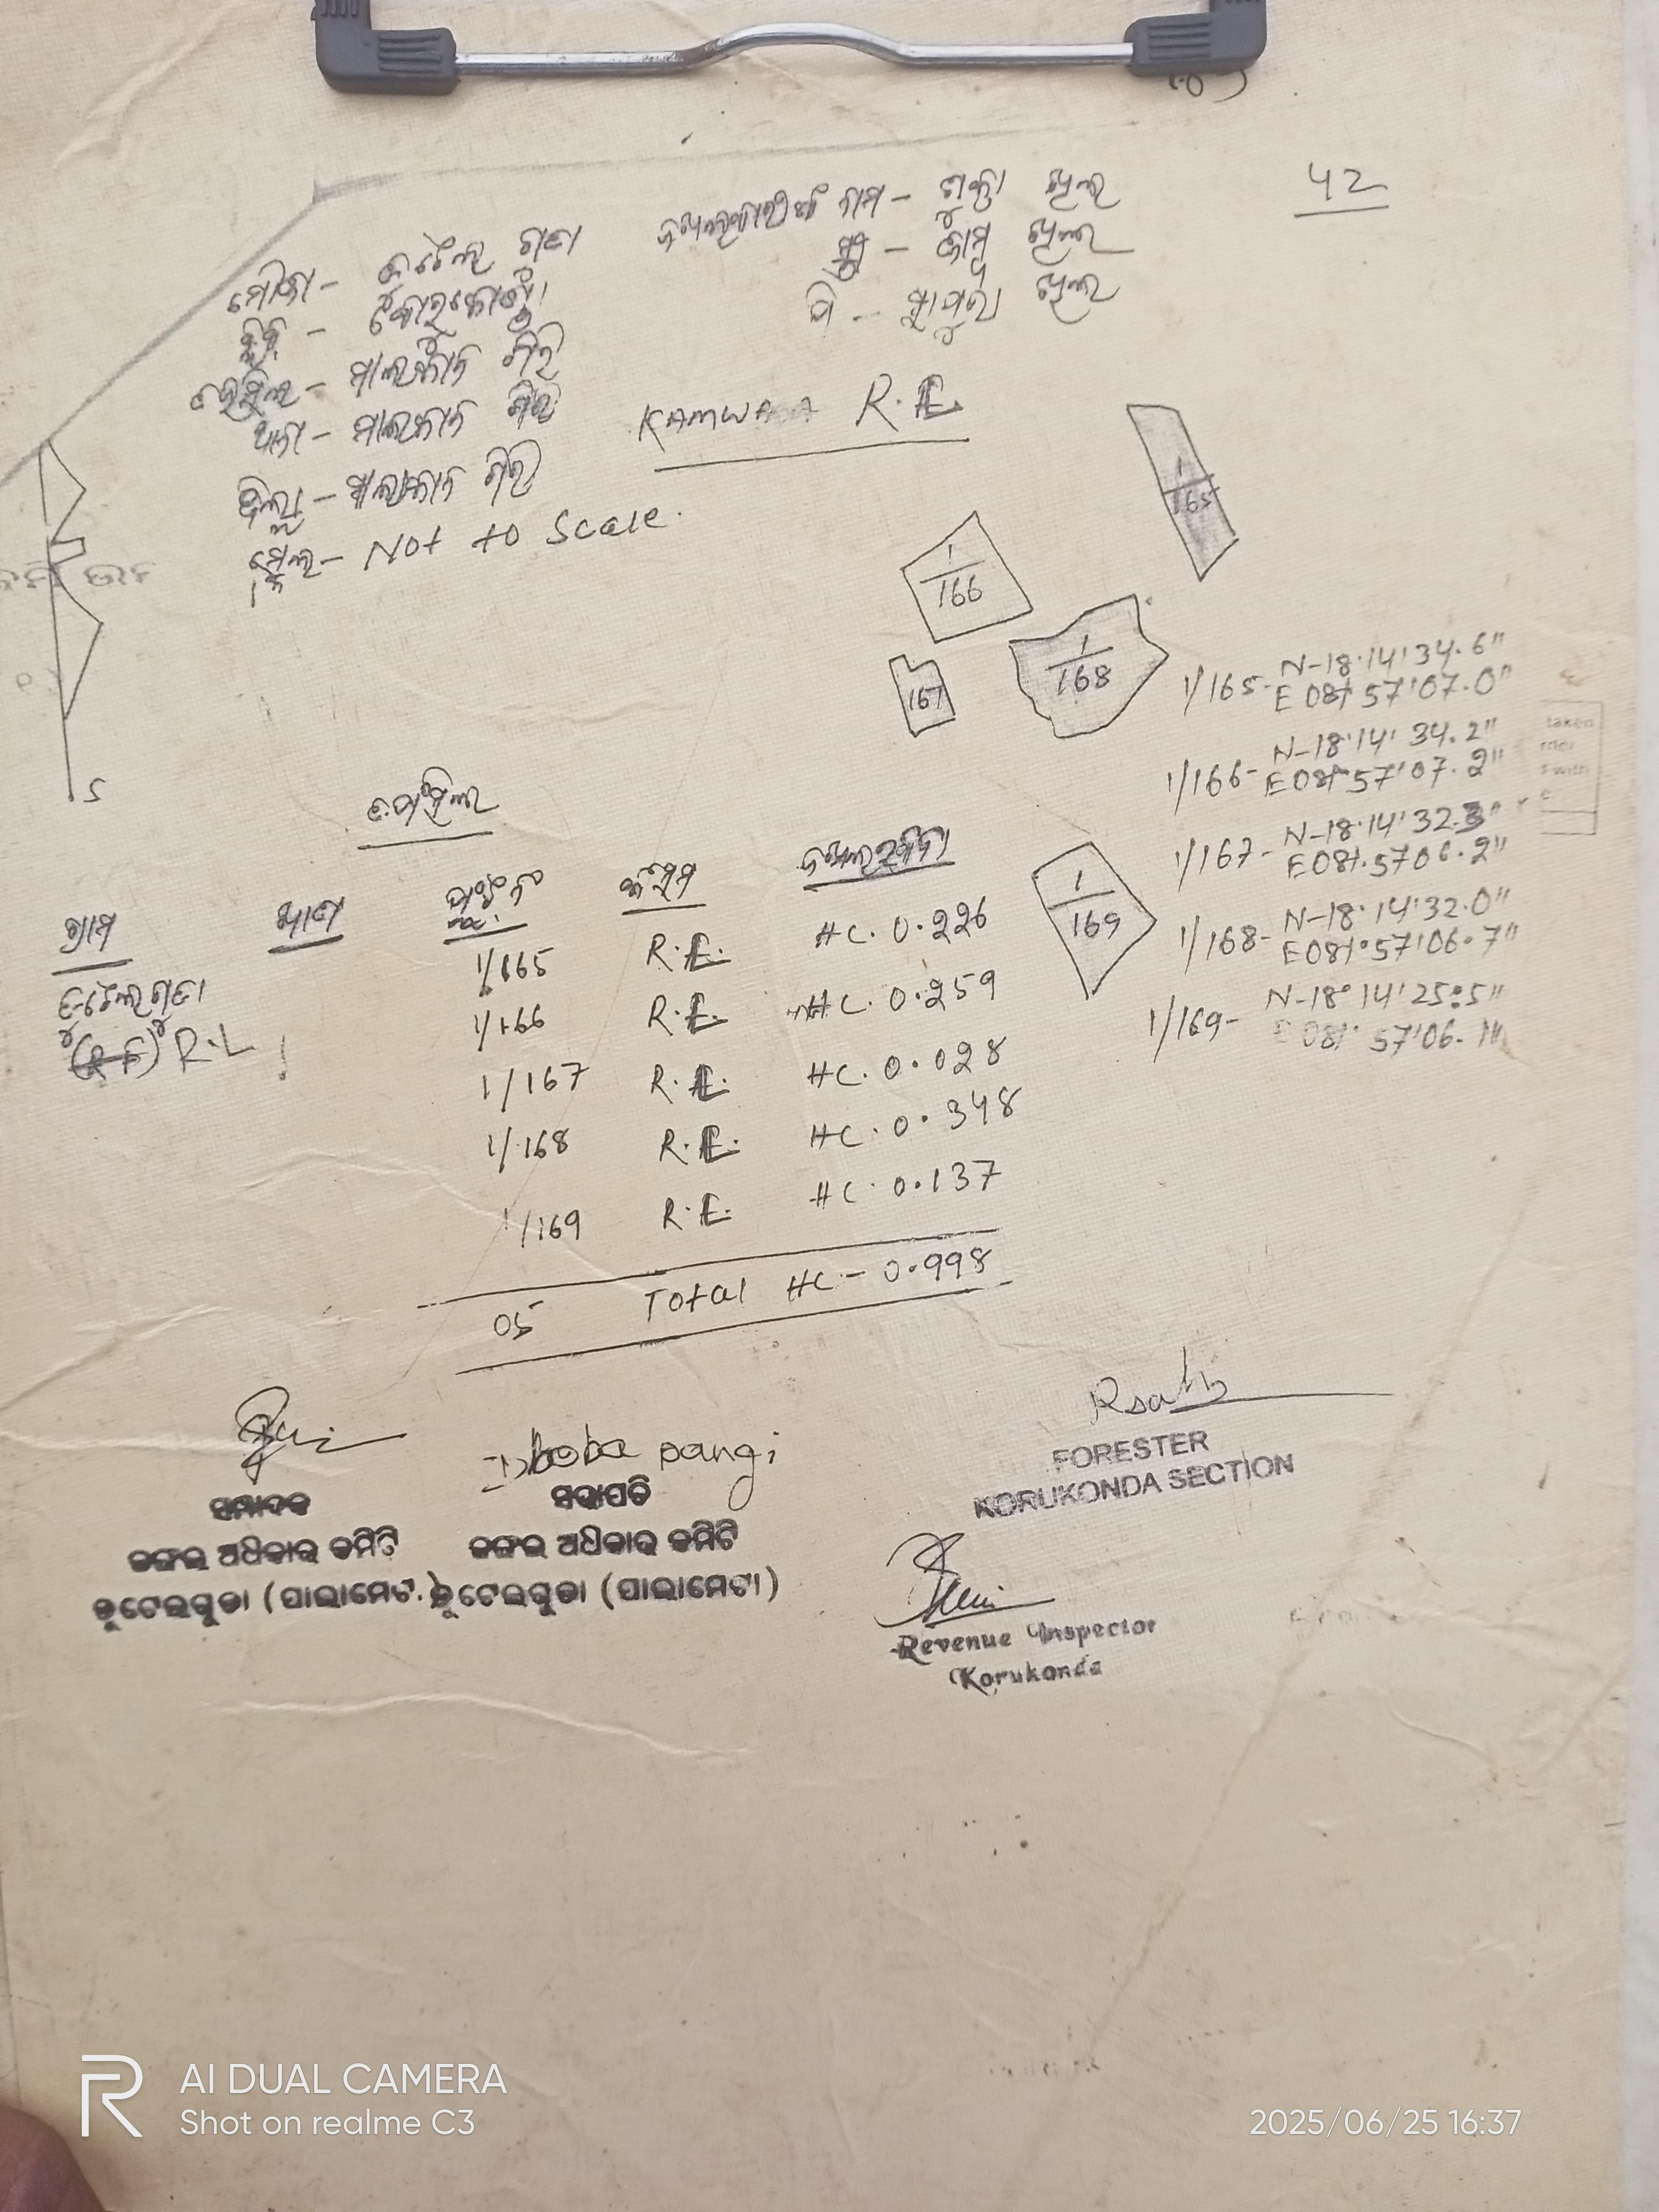 42
ମୌଜା - କୁଟେଲ ଗୁଡା
ଦଖଲକାରୀଙ୍କ ନାମ - ଶୁକ୍ରା ଖିଲ
ସ୍ୱ - ଖିଲ
ପି - ଖିଲ
କୋରୁକୋଣ୍ଡା
ତହସିଲ - ମାଲକାନ ଗିରି
ଥାନା - ମାଲକାନ ଗିରି
ଜିଲ୍ଲା - ମାଲକାନ ଗିରି
ସ୍କେଲ - Not to Scale.
KAMWADA R.F.
1/165
1/166
167
1/168
1/169
S
1/165- N-18°14'34.6"
E 081°57'07.0"
1/166- N-18°14'34.2"
E 081°57'07.2"
1/167- N-18°14'32.3"
E 081.5706.2"
1/168- N-18°14'32.0"
E 081°57'06.7"
1/169- N-18°14'25.5"
E 081° 57'06.1"
ତପସିଲ
ଗ୍ରାମ ଖାତା ପ୍ଲଟ ନଂ କିସମ
କୁଟେଲଗୁଡା
(R.F) R.L
1/165 R.F. HC. 0.226
1/166 R.F. HC. 0.259
1/167 R.F. HC. 0.028
1/168 R.F. HC. 0.348
1/169 R.F. HC. 0.137
05 Total HC - 0.998
Dhoba pangi
ସମ୍ପାଦକ
ଜଙ୍ଗଲ ଅଧିକାର କମିଟି
କୁଟେଲଗୁଡା (ପାଲାମେଟା)
ସଭାପତି
ଜଙ୍ଗଲ ଅଧିକାର କମିଟି
କୁଟେଲଗୁଡା (ପାଲାମେଟା)
FORESTER
KORUKONDA SECTION
Revenue Inspector
Korukonda
AI DUAL CAMERA
Shot on realme C3
2025/06/25 16:37